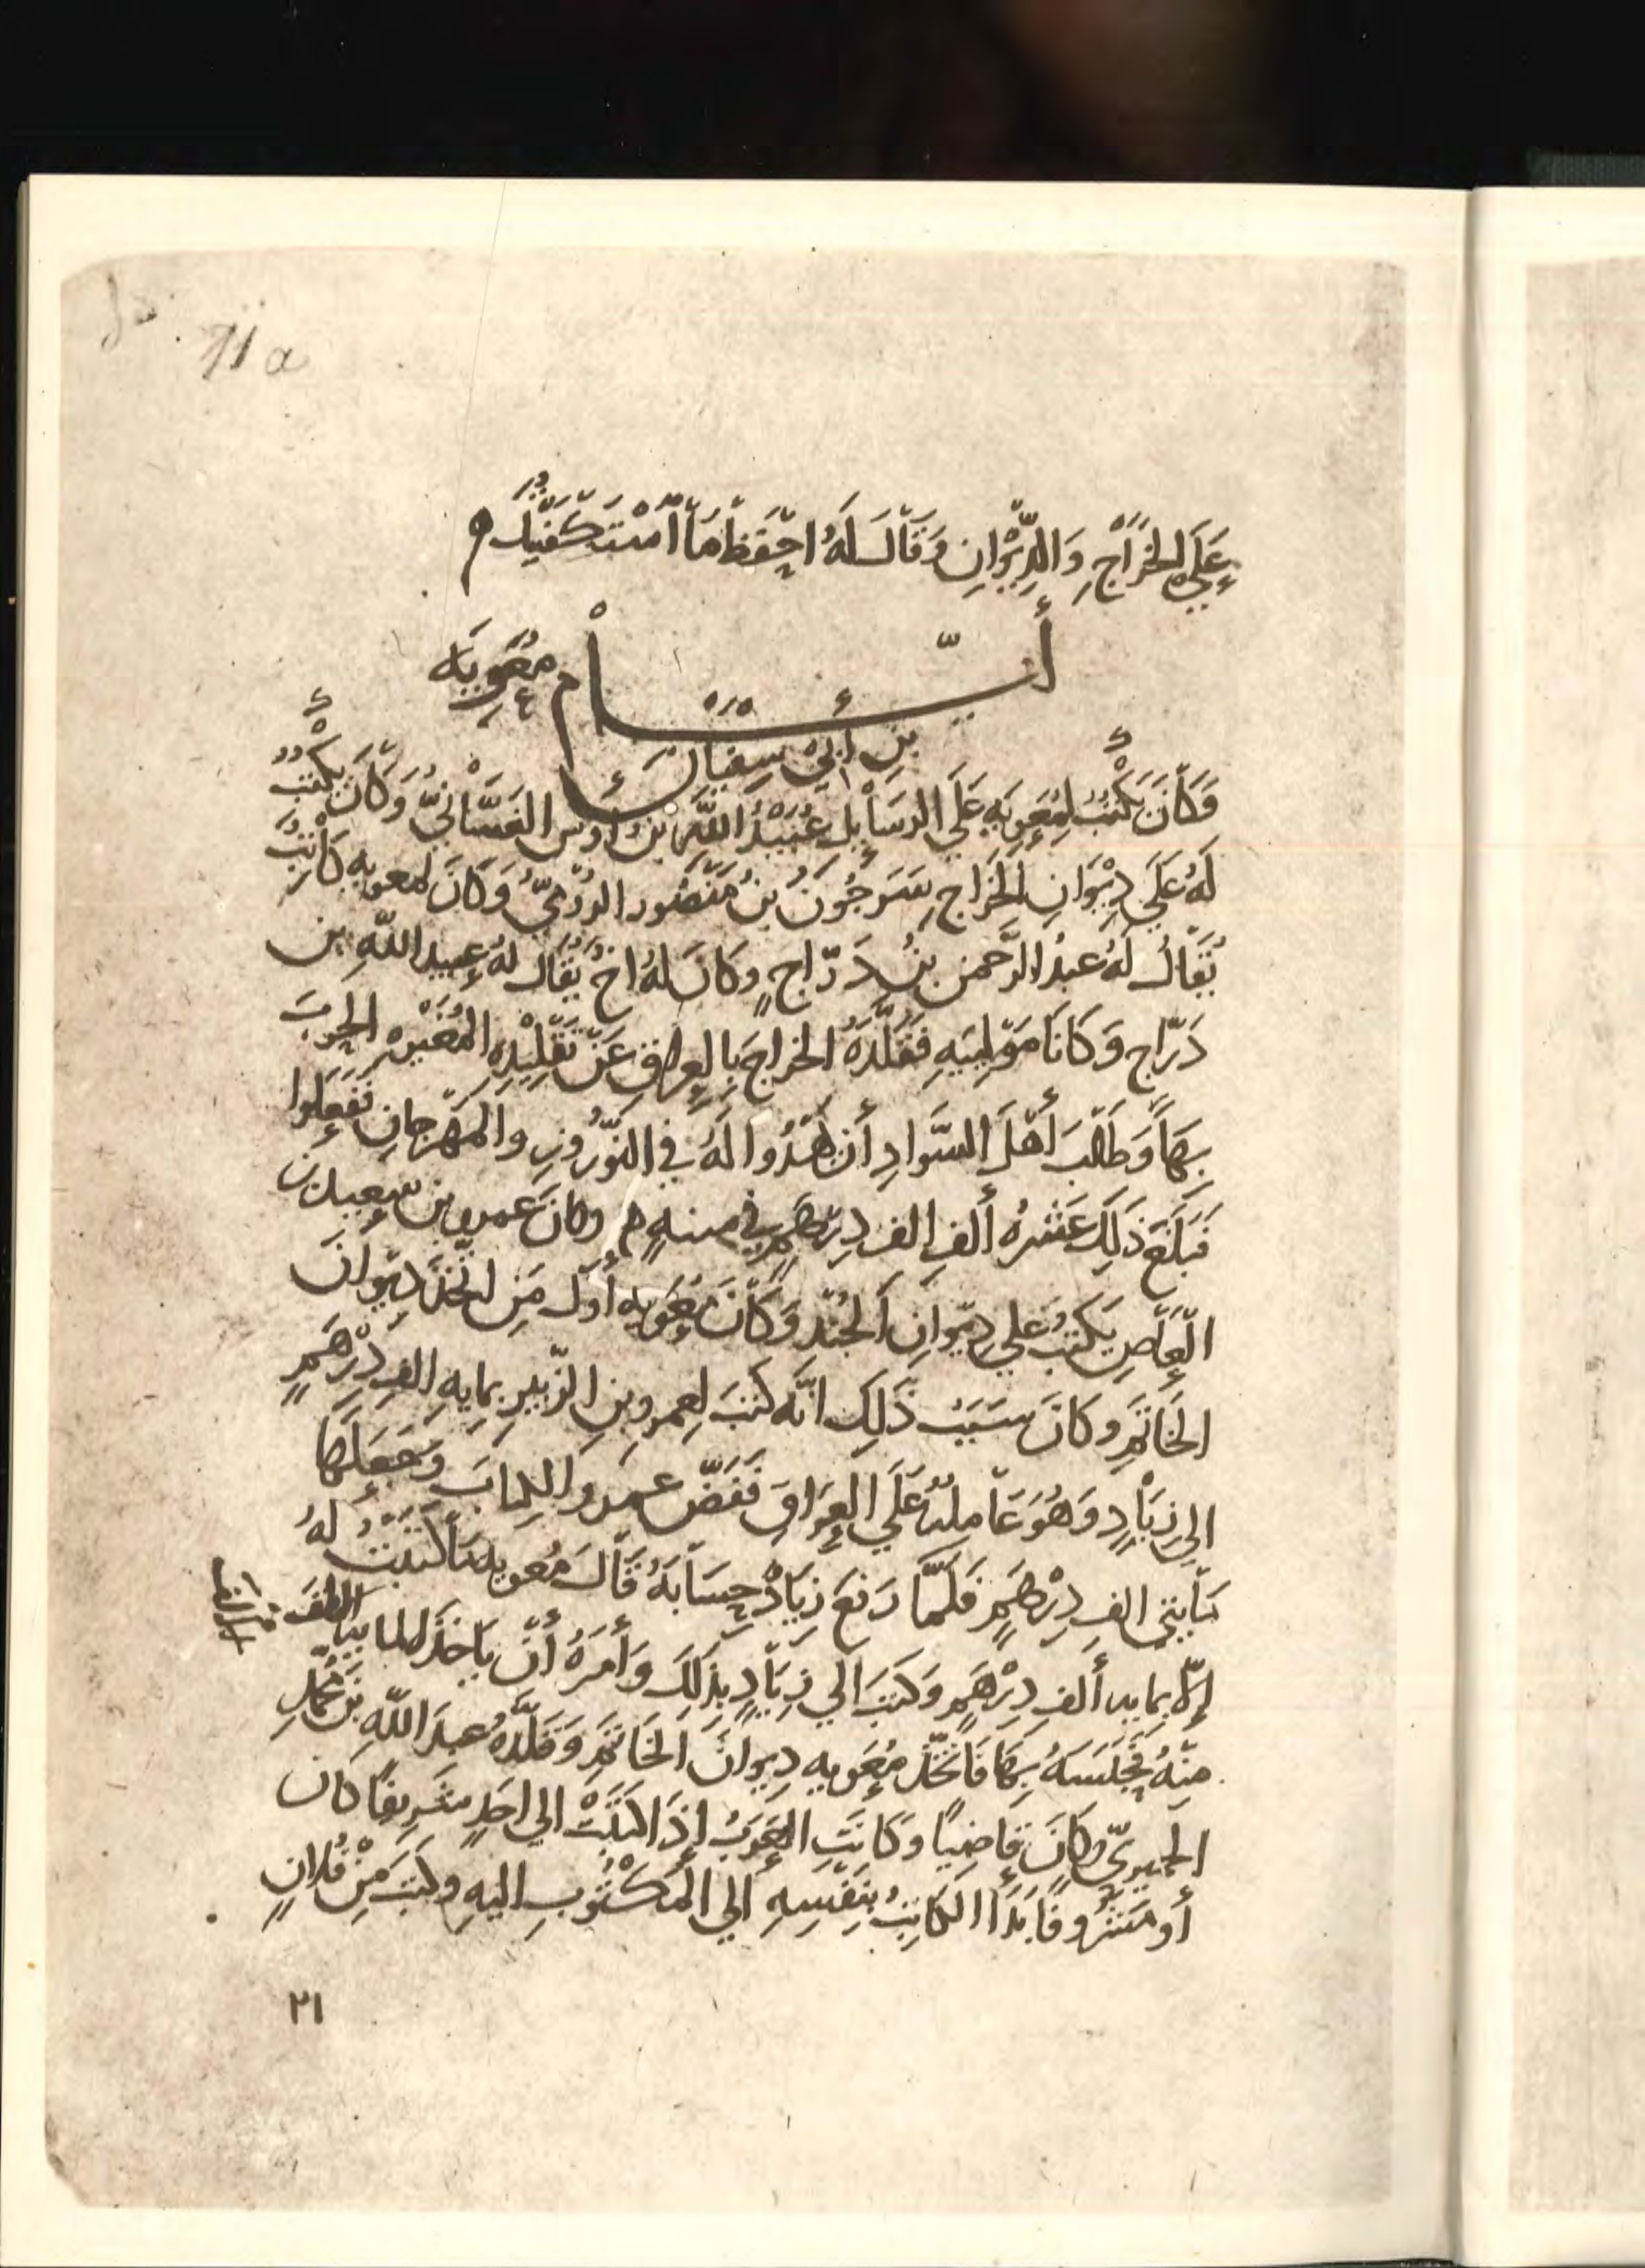 11a
عَلَي الخَرَاجِ وَالدِّيْوانِ وَقَالَ لَهُ احْفَظ مَا اسْتَكْفَيْتُكَ
أيّــــام مُعَوِيَه
بن أبي سفيان
وَكَانَ يَكْتُبُ لِمُعَوِيَهِ عَلَي الرسَايِل عُبَيْدُ اللَّه بنُ أَوْس الغَسَّانيّ وَكَانَ يكْتُبُ
لَهُ عَلَي دِيْوَانِ الخَرَاجِ سَرجُونُ بنُ مَنْصُور الرُوميّ وَكَانَ لمعويه كَاتِبٌ
يُقَالُ لَهُ عبدُ الرَّحمن بنُ دَرّاجٍ وكَانَ لهُ اخٌ يُقَال لهُ عبيد اللّهِ بن
دَرّاج وَكَانَا مَوْلَيَيهِ فَقَلَّدَهُ الخراجَ بِالعِراقِ عَنْ تَقْلِيْدِهِ المُغَيْرهِ الحَربَ
بِهَا وَطَالَبَ أَهْلَ السَّوادِ أن يُهْدُوا لَهُ في النَّوْرُوزِ والمَهْرجانِ فَفَعَلُوا
فَبَلَغَ ذَلِكَ عَشرهُ ألفِ الف دِرهَمٍ في سنهٍ وكانَ عمرو بن سعيد بن
الْعَاصِ يَكتُبُ علي دِيْوانِ الجُنْدِ وَكَانَ مُعَوِيه أوّل مَنِ اتَّخَذَ دِيْوانَ
الخَاتَمِ وكانَ سَبَبُ ذَلِكَ انَّه كَتَبَ لعمرو بنِ الزّبيرِ بمايهِ الفِ دِرْهَمٍ
الي زِيَادٍ وَهُوَ عَامِلُهُ عَلَي العِرَاقِ فَفَضّ عمرو الكِتابَ وَجَعَلَهَا
مَايتي الفِ دِرْهَمٍ فَلَمَّا رَفَعَ زِيَادٌ حِسَابَهُ قَالَ مُعويه مَا كَتَبْتُ لَهُ
إلّا بمايه ألفِ دِرْهَمٍ وَكَتبَ الي زِيَادٍ بذَلِكَ وَأَمَرَهُ أنْ يَاخذَ المايه الف
مِنْهُ فَحَبَسَهُ بِهَا فَاتَّخَذَ مُعَويه دِيوانَ الخَاتَمِ وَقَلَّدَهُ عبدَ اللّهِ بن مُحَمّدٍ
الحِميريّ وكانَ قَاضِياً وَكَانَتِ العَرَبُ إذَا كتَبَتْ الي احَدٍ شَرِيفاً كانَ
أو مَشْرُوفاً بَدَأ الكَاتِبُ بنَفْسِهِ الي المَكْتُوبِ اليهِ وكتَبَ مِنْ فُلانٍ
٢١